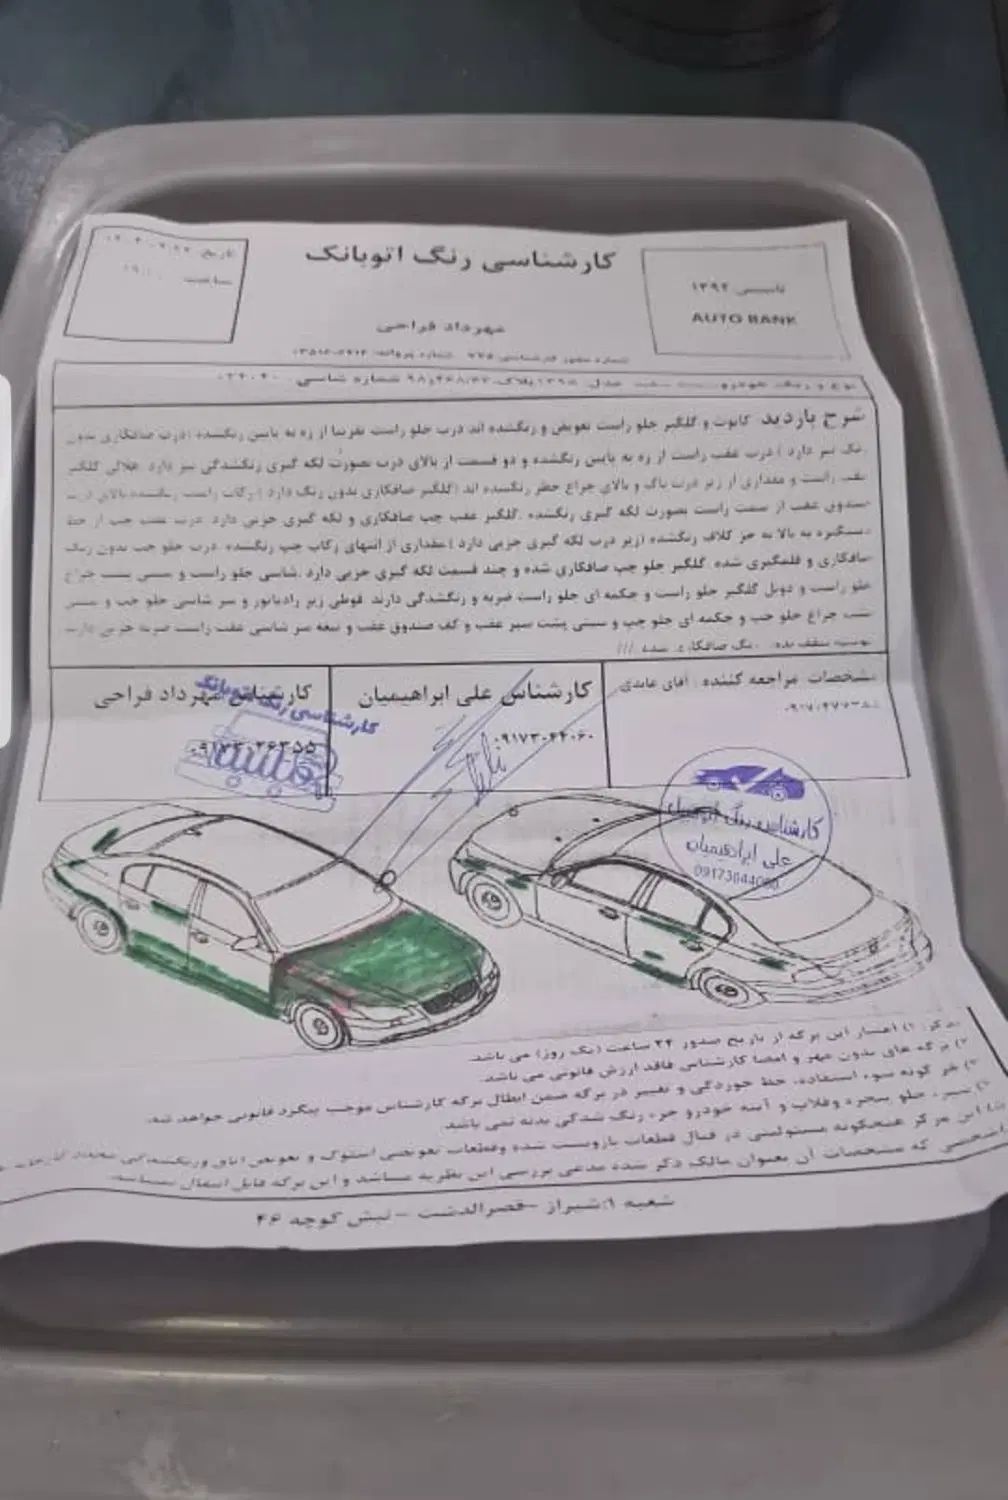 کارشناسی رنگ اتوبانک
تاسیس ۱۳۹۲
AUTO BANK
تاریخ:
ساعت:
مهرداد فراحی
شرح بازدید کاپوت و گلگیر جلو راست تعویض و رنگشده اند درب جلو راست تقریبا از زه به پایین رنگشده (درب صافکاری بدون
رنگ نیز دارد) درب عقب راست از زه به پایین رنگشده و دو قسمت از بالای درب بصورت لکه گیری رنگشدگی نیز دارد هلالی گلگیر
عقب راست و مقداری از زیر درب باک و بالای چراغ خطر رنگشده اند (گلگیر صافکاری بدون رنگ دارد) رکاب راست رنگشده بالای درب
صندوق عقب از سمت راست بصورت لکه گیری رنگشده گلگیر عقب چپ صافکاری و لکه گیری جزیی دارد درب عقب چپ از خط
دستگیره به بالا به جز کلاف رنگشده (زیر درب لکه گیری جزیی دارد) مقداری از انتهای رکاب چپ رنگشده درب جلو چپ بدون رنگ
صافکاری و قلمگیری شده گلگیر جلو چپ صافکاری شده و چند قسمت لکه گیری جزیی دارد شاسی جلو راست و سینی پشت چراغ
جلو راست و دوبل گلگیر جلو راست و چکمه ای جلو راست ضربه و رنگشدگی دارند قوطی زیر رادیاتور و سر شاسی جلو چپ و سینی
پشت چراغ جلو چپ و چکمه ای جلو چپ و سینی پشت سپر عقب و کف صندوق عقب و تیغه سر شاسی عقب راست ضربه جزیی دارند
مشخصات مراجعه کننده : آقای عابدی
کارشناس علی ابراهیمیان
۰۹۱۷۳۰۴۴۰۶۰
کارشناس مهرداد فراحی
کارشناسی رنگ اتوبانک
علی ابراهیمیان
ذکر: ۱) اعتبار این برگه از تاریخ صدور ۲۴ ساعت (یک روز) می باشد.
۲) برگه های بدون مهر و امضا کارشناس فاقد ارزش قانونی می باشد.
۳) هر گونه سوء استفاده، خط خوردگی و تغییر در برگه ضمن ابطال برگه کارشناس موجب پیگرد قانونی خواهد شد.
جلو پنجره وقلاب و آینه خودرو جزء رنگ شدگی بدنه نمی باشد
این مرکز هیچگونه مسئولیتی در قبال قطعات بازوبست شده وقطعات تعویضی استوک و تعویض اتاق
شخصی که مشخصات آن بعنوان مالک ذکر شده مدعی بررسی این نظریه میباشد و این برگه قابل انتقال نمیباشد.
شعبه ۱:شیراز -قصرالدشت - نبش کوچه ۴۶